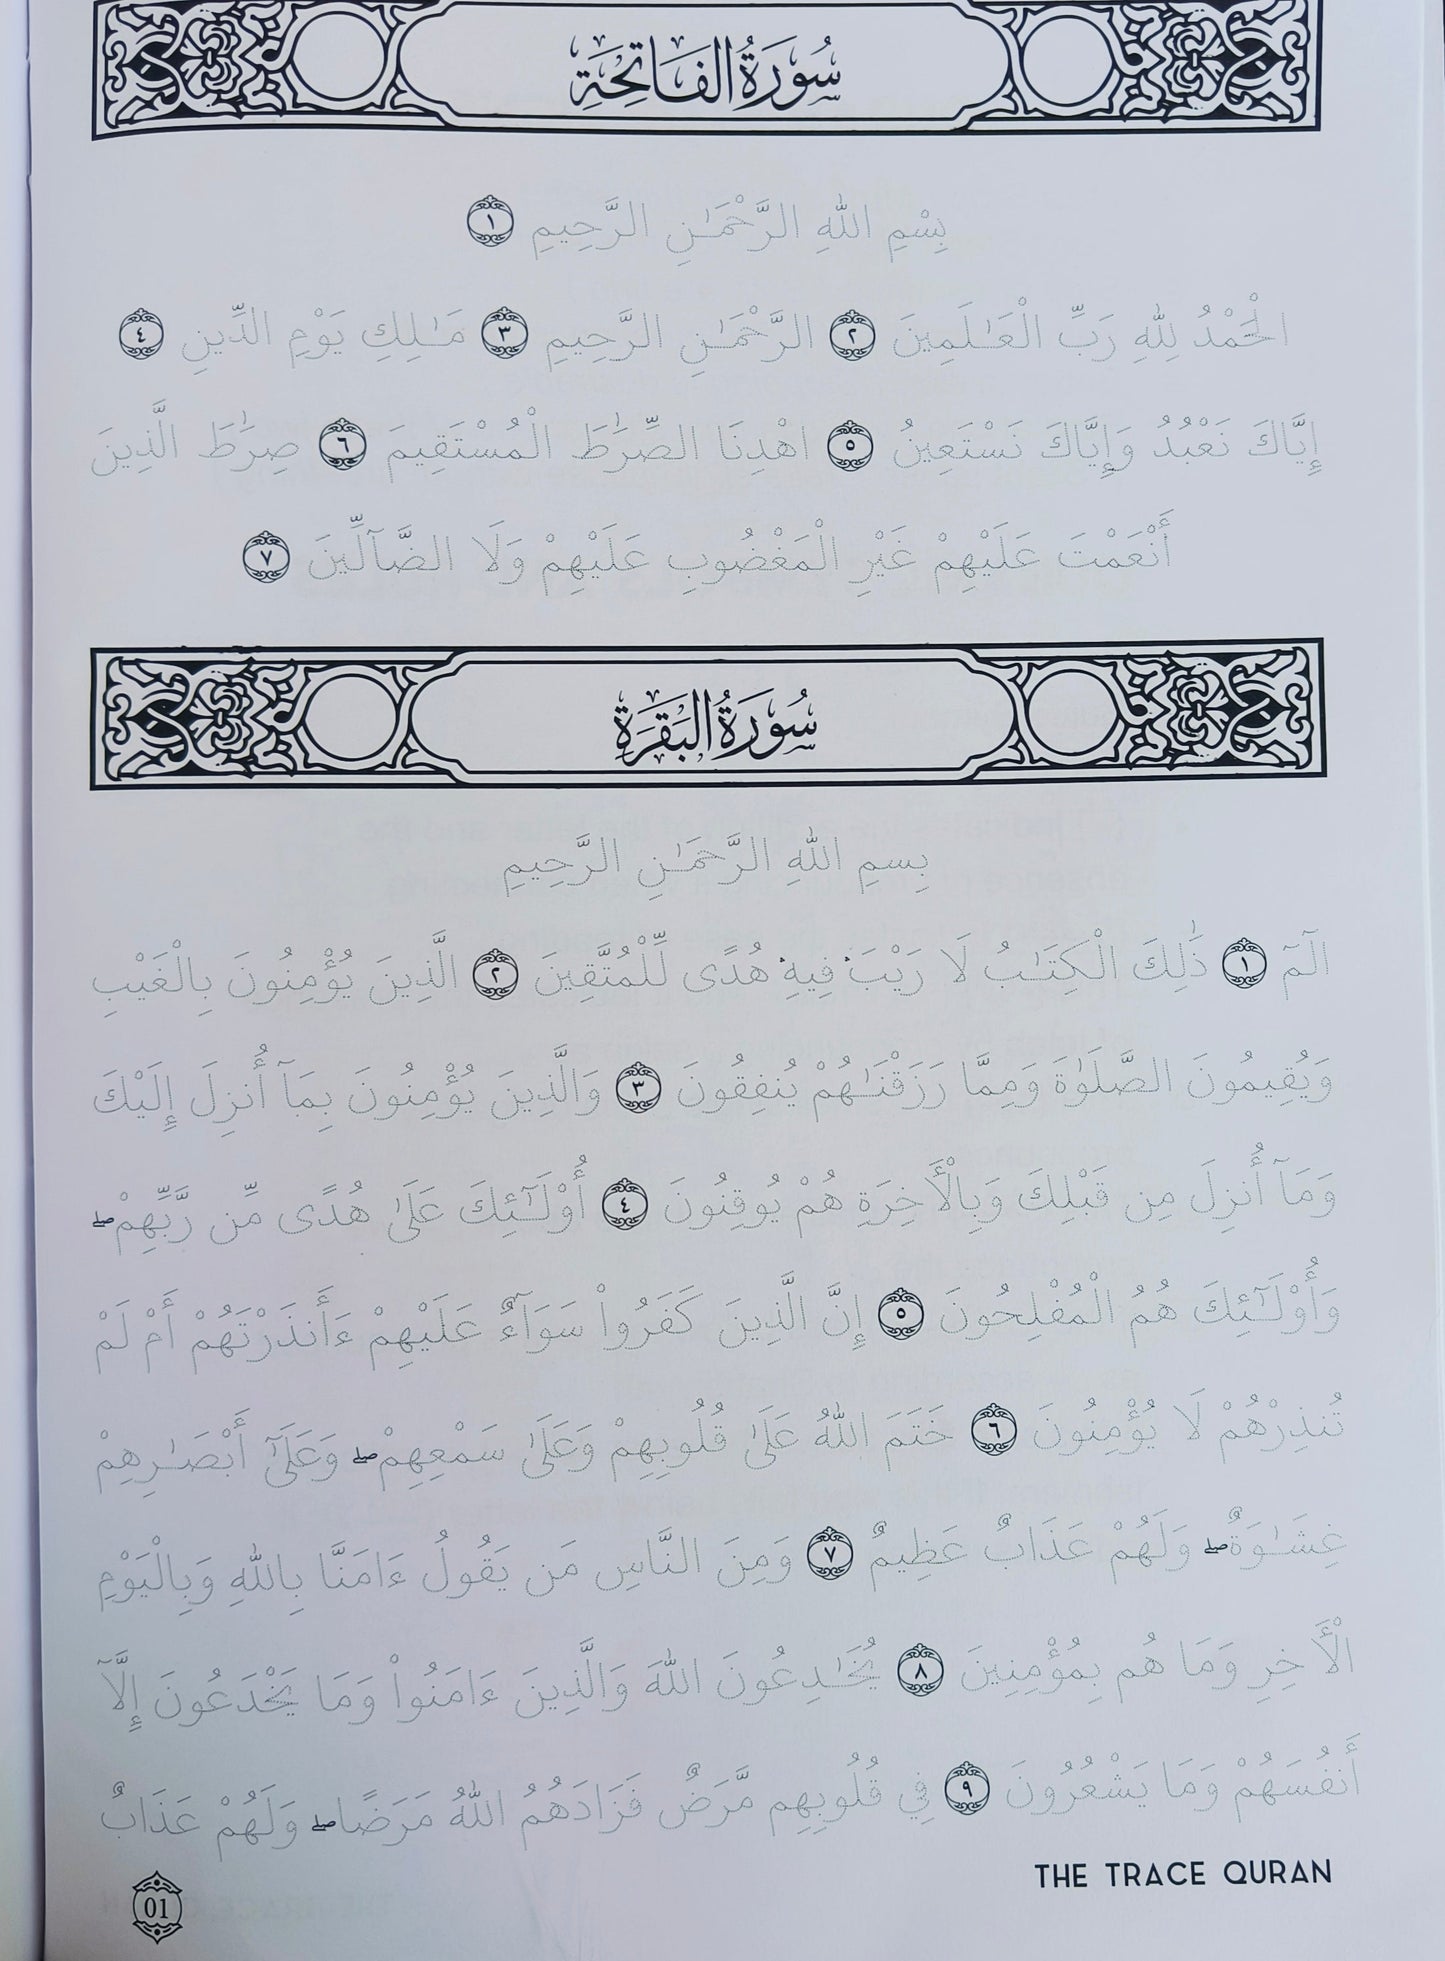 سُورَةُ الفَاتِحَةِ
بِسْمِ اللَّهِ الرَّحْمَـٰنِ الرَّحِيمِ ١
الْحَمْدُ لِلَّهِ رَبِّ الْعَـٰلَمِينَ ٢ الرَّحْمَـٰنِ الرَّحِيمِ ٣ مَـٰلِكِ يَوْمِ الدِّينِ ٤
إِيَّاكَ نَعْبُدُ وَإِيَّاكَ نَسْتَعِينُ ٥ اهْدِنَا الصِّرَٰطَ الْمُسْتَقِيمَ ٦ صِرَٰطَ الَّذِينَ
أَنْعَمْتَ عَلَيْهِمْ غَيْرِ الْمَغْضُوبِ عَلَيْهِمْ وَلَا الضَّآلِّينَ ٧
سُورَةُ البَقَرَةِ
بِسمِ اللَّهِ الرَّحمَـٰنِ الرَّحِيمِ
الٓمٓ ١ ذَٰلِكَ الْكِتَـٰبُ لَا رَيْبَ ۛ فِيهِ ۛ هُدًى لِّلْمُتَّقِينَ ٢ الَّذِينَ يُؤْمِنُونَ بِالْغَيْبِ
وَيُقِيمُونَ الصَّلَوٰةَ وَمِمَّا رَزَقْنَـٰهُمْ يُنفِقُونَ ٣ وَالَّذِينَ يُؤْمِنُونَ بِمَآ أُنزِلَ إِلَيْكَ
وَمَآ أُنزِلَ مِن قَبْلِكَ وَبِالْأَخِرَةِ هُمْ يُوقِنُونَ ٤ أُوْلَـٰٓئِكَ عَلَىٰ هُدًى مِّن رَّبِّهِمْ ۖ
وَأُوْلَـٰٓئِكَ هُمُ الْمُفْلِحُونَ ٥ إِنَّ الَّذِينَ كَفَرُواْ سَوَآءٌ عَلَيْهِمْ ءَأَنذَرْتَهُمْ أَمْ لَمْ
تُنذِرْهُمْ لَا يُؤْمِنُونَ ٦ خَتَمَ اللَّهُ عَلَىٰ قُلُوبِهِمْ وَعَلَىٰ سَمْعِهِمْ ۖ وَعَلَىٰٓ أَبْصَـٰرِهِمْ
غِشَـٰوَةٌ ۖ وَلَهُمْ عَذَابٌ عَظِيمٌ ٧ وَمِنَ النَّاسِ مَن يَقُولُ ءَامَنَّا بِاللَّهِ وَبِالْيَوْمِ
الْأَخِرِ وَمَا هُم بِمُؤْمِنِينَ ٨ يُخَـٰدِعُونَ اللَّهَ وَالَّذِينَ ءَامَنُواْ وَمَا يَخْدَعُونَ إِلَّآ
أَنفُسَهُمْ وَمَا يَشْعُرُونَ ٩ فِي قُلُوبِهِم مَّرَضٌ فَزَادَهُمُ اللَّهُ مَرَضًا ۖ وَلَهُمْ عَذَابٌ
THE TRACE QURAN
01